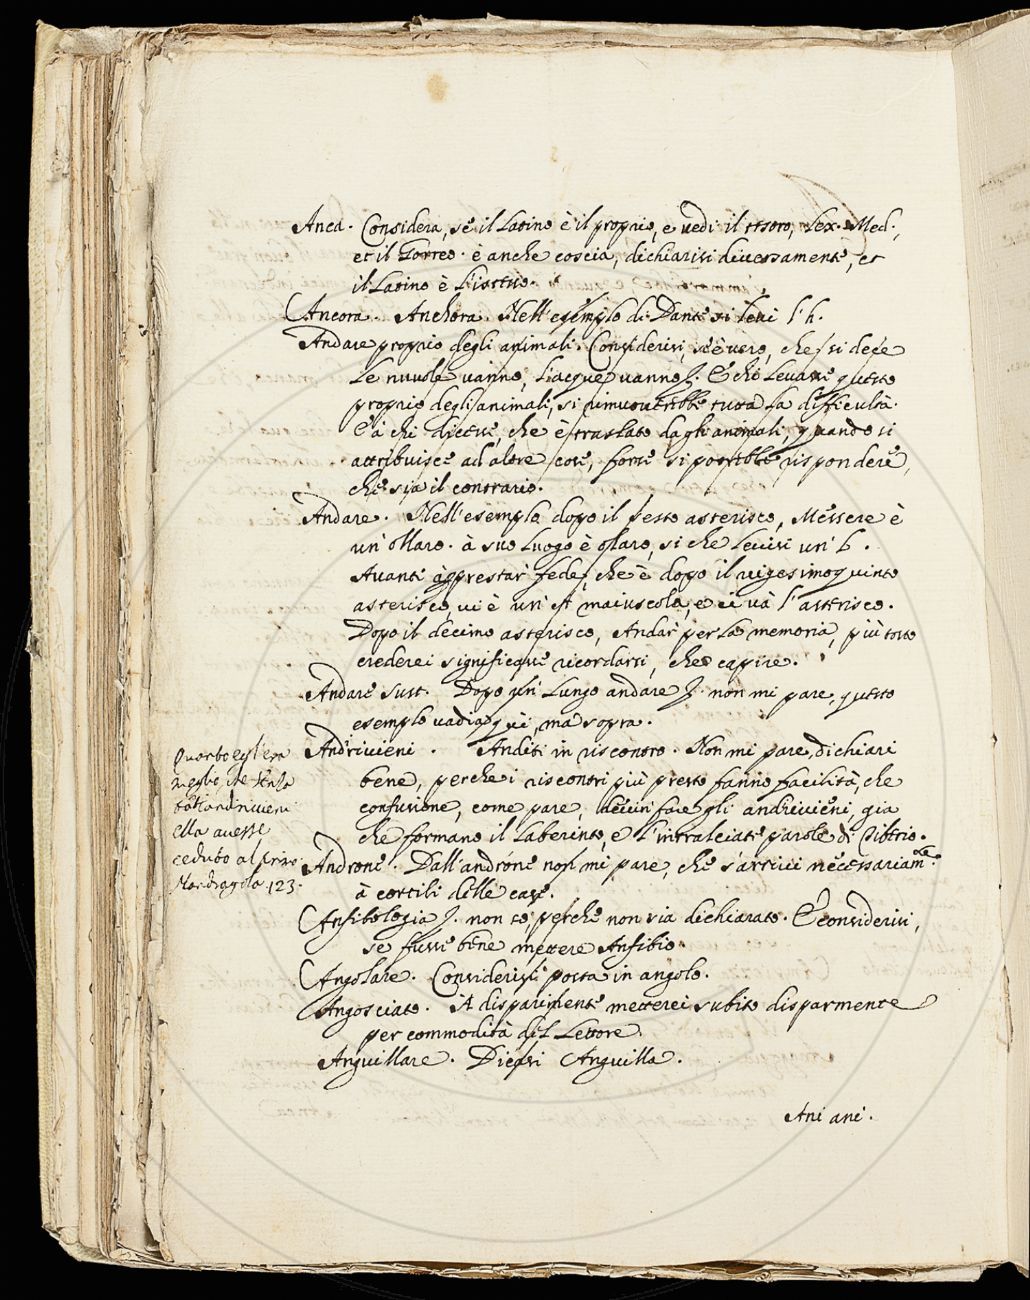 Anca. Considera, se il Latino è il proprio, e uedi il tesoro, Lex. Med.,
et il Torreo. è anche coscia, dichiarisi diuersamente, et
il Latino è l'istesso.
Ancora. Anchora. Nell'esemplo di Dante si leui l'h.
Andare proprio degli animali. Considerisi, se è uero, che si dice
Le nuuole uanno, l'acque uanno. E chi leuasse questo
proprio degli animali, si rimuouerebbe tutta la difficultà.
E à chi dicesse, che è traslato dagli animali, quando si
attribuisce ad altre cose, forse si potrebbe rispondere,
che sia il contrario.
Andare. Nell'esemplo dopo il sesto asterisco, Messere è
un' ollaro. à suo luogo è olaro, si che leuisi un' l.
Auanti apprestar fede, che è dopo il uigesimoquinto
asterisco, ui è un' A maiuscola, e ci uà l'asterisco.
Dopo il decimo asterisco, Andar per la memoria, più tosto
crederei significasse ricordarsi, che capire.
Andare sust. Dopo un Lungo andare non mi pare, questo
esemplo uadia quì, ma sopra.
Andiriuieni. Anditi in riscontro. Non mi pare, dichiari
bene, perche i riscontri più presto fanno facilità, che
confusione, come pare, deuin fare gli andiriuieni, già
che formano il Laberinto, e l'intralciate parole di
Androne. Dall'androne non mi pare, che s'arriui necessariam.te
à cortili delle case.
Anfibologia non so, perche non sia dichiarato. E considerisi,
se fusse bene mettere Anfibio
Angolare. Considerisi posta in angolo.
Angosciato. A disparimente metterei subito disparmente
per commodità del Lettore.
Anguillare. Dicesi Anguilla.
Ani ani.
Quanto egl'era
meglio che senza
tati andiriuieni
ella auesse
ceduto al primo
Mandragola 123.